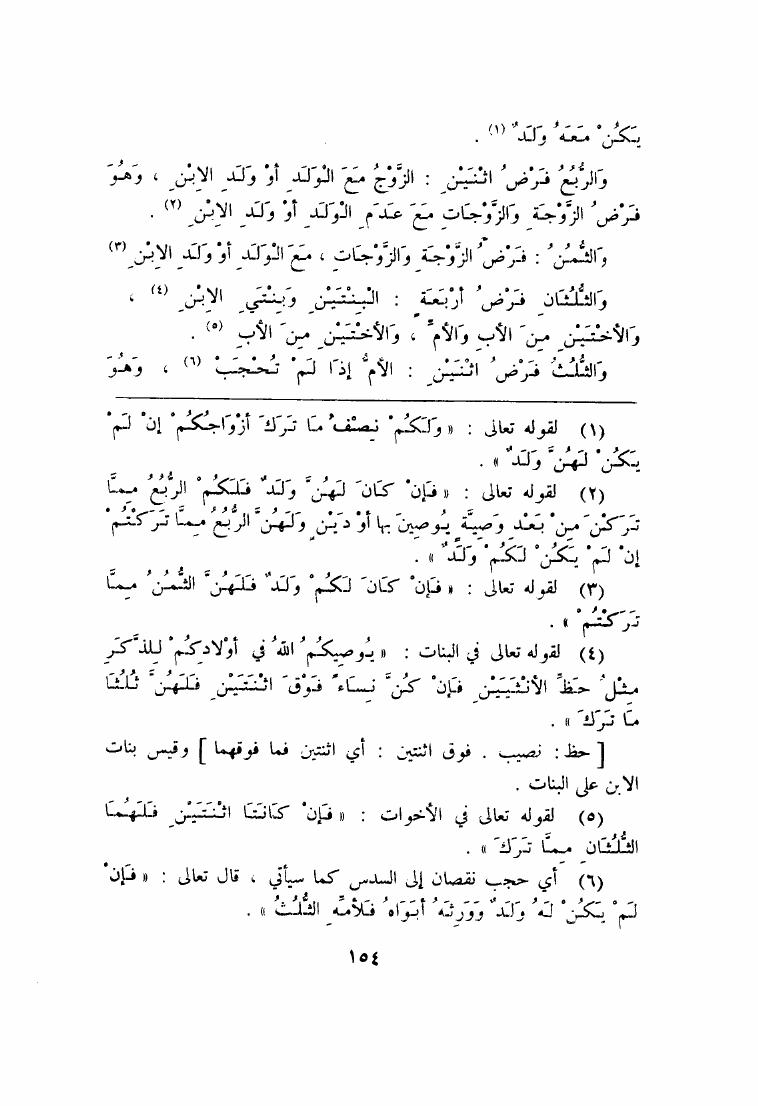 يَكُنْ مَعَهُ وَلَدٌ (١) .
وَالرُّبُعُ فَرْضُ اثْنَيْنِ : الزَّوْجُ مَعَ الْوَلَدِ أَوْ وَلَدِ الابْنِ ، وَهُوَ
فَرْضُ الزَّوْجَةِ وَالزَّوْجَاتِ مَعَ عَدَمِ الْوَلَدِ أَوْ وَلَدِ الابْنِ (٢) .
وَالثُّمُنُ : فَرْضُ الزَّوْجَةِ وَالزَّوْجَاتِ ، مَعَ الْوَلَدِ أَوْ وَلَدِ الابْنِ (٣)
وَالثُّلُثَانِ فَرْضُ أَرْبَعَةٍ : الْبِنْتَيْنِ وَبِنْتَيِ الابْنِ (٤) ،
وَالأُخْتَيْنِ مِنَ الأبِ وَالأمِّ ، وَالأُخْتَيْنِ مِنَ الأبِ (٥) .
وَالثُّلُثُ فَرْضُ اثْنَيْنِ : الأمُّ إذَا لَمْ تُحْجَبْ (٦) ، وَهُوَ
(١) لقوله تعالى : « وَلَكُمْ نِصْفُ مَا تَرَكَ أَزْوَاجُكُمْ إنْ لَمْ
يَكُنْ لَهُنَّ وَلَدٌ » .
(٢) لقوله تعالى : « فَإِنْ كَانَ لَهُنَّ وَلَدٌ فَلَكُمْ الرُّبُعُ مِمَّا
تَرَكْنَ مِنْ بَعْدِ وَصِيَّةٍ يُوصِينَ بِهَا أَوْ دَيْنٍ وَلَهُنَّ الرُّبُعُ مِمَّا تَرَكْتُمْ
إنْ لَمْ يَكُنْ لَكُمْ وَلَدٌ » .
(٣) لقوله تعالى : « فَإِنْ كَانَ لَكُمْ وَلَدٌ فَلَهُنَّ الثُّمُنُ مِمَّا
تَرَكْتُمْ » .
(٤) لقوله تعالى في البنات : « يُوصِيكُمُ اللهُ في أَوْلادِكُمْ لِلذَّكَرِ
مِثْلُ حَظِّ الأُنْثَيَيْنِ فَإِنْ كُنَّ نِسَاءً فَوْقَ اثْنَتَيْنِ فَلَهُنَّ ثُلُثَا
مَا تَرَكَ » .
[ حظ : نصيب . فوق اثنتين : أي اثنتين فما فوقهما ] وقيس بنات
الابن على البنات .
(٥) لقوله تعالى في الأخوات : « فَإِنْ كَانَتَا اثْنَتَيْنِ فَلَهُمَا
الثُّلُثَانِ مِمَّا تَرَكَ » .
(٦) أي حجب نقصان إلى السدس كما سيأتي ، قال تعالى : « فَإِنْ
لَمْ يَكُنْ لَهُ وَلَدٌ وَوَرِثَهُ أَبَوَاهُ فَلأُمِّهِ الثُّلُثُ » .
١٥٤